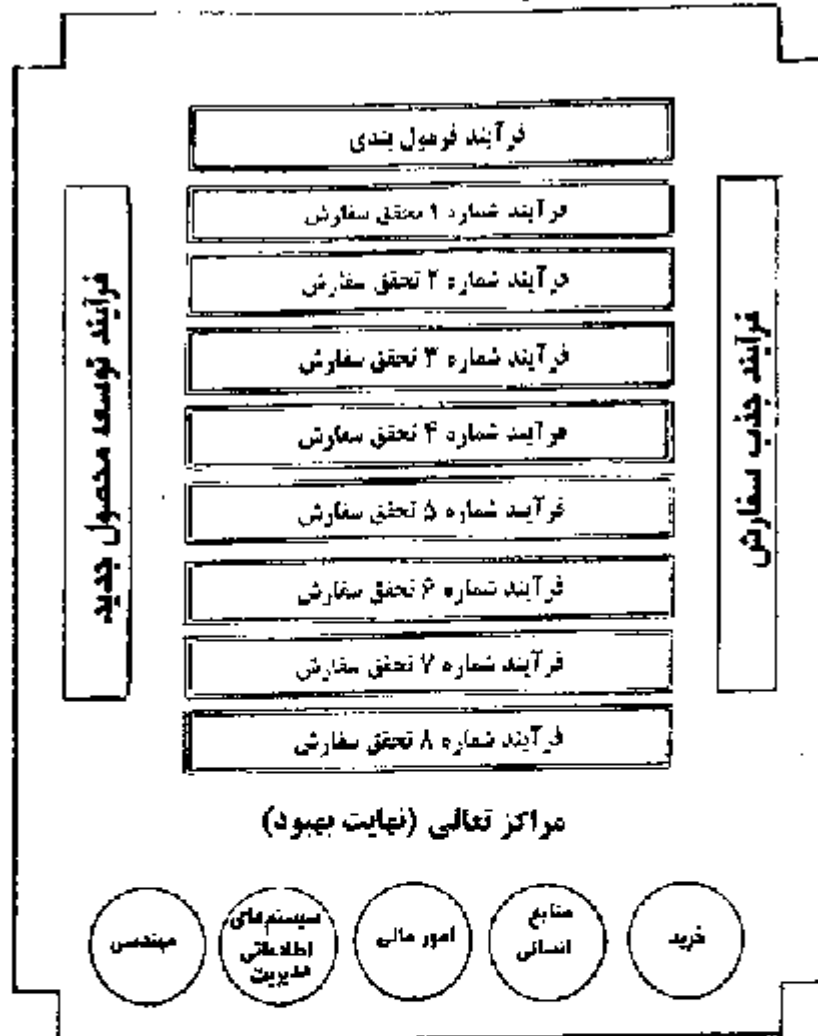 فرآیند فرمول بندی
فرآیند شماره ۱ تحقق سفارش
فرآیند شماره ۲ تحقق سفارش
فرآیند شماره ۳ تحقق سفارش
فرآیند شماره ۴ تحقق سفارش
فرآیند شماره ۵ تحقق سفارش
فرآیند شماره ۶ تحقق سفارش
فرآیند شماره ۷ تحقق سفارش
فرآیند شماره ۸ تحقق سفارش
فرآیند جذب سفارش
فرآیند توسعه محصول جدید
مراکز تعالی (نهایت بهبود)
خرید
منابع
انسانی
امور مالی
سیستم‌های
اطلاعاتی
مدیریت
مهندسی